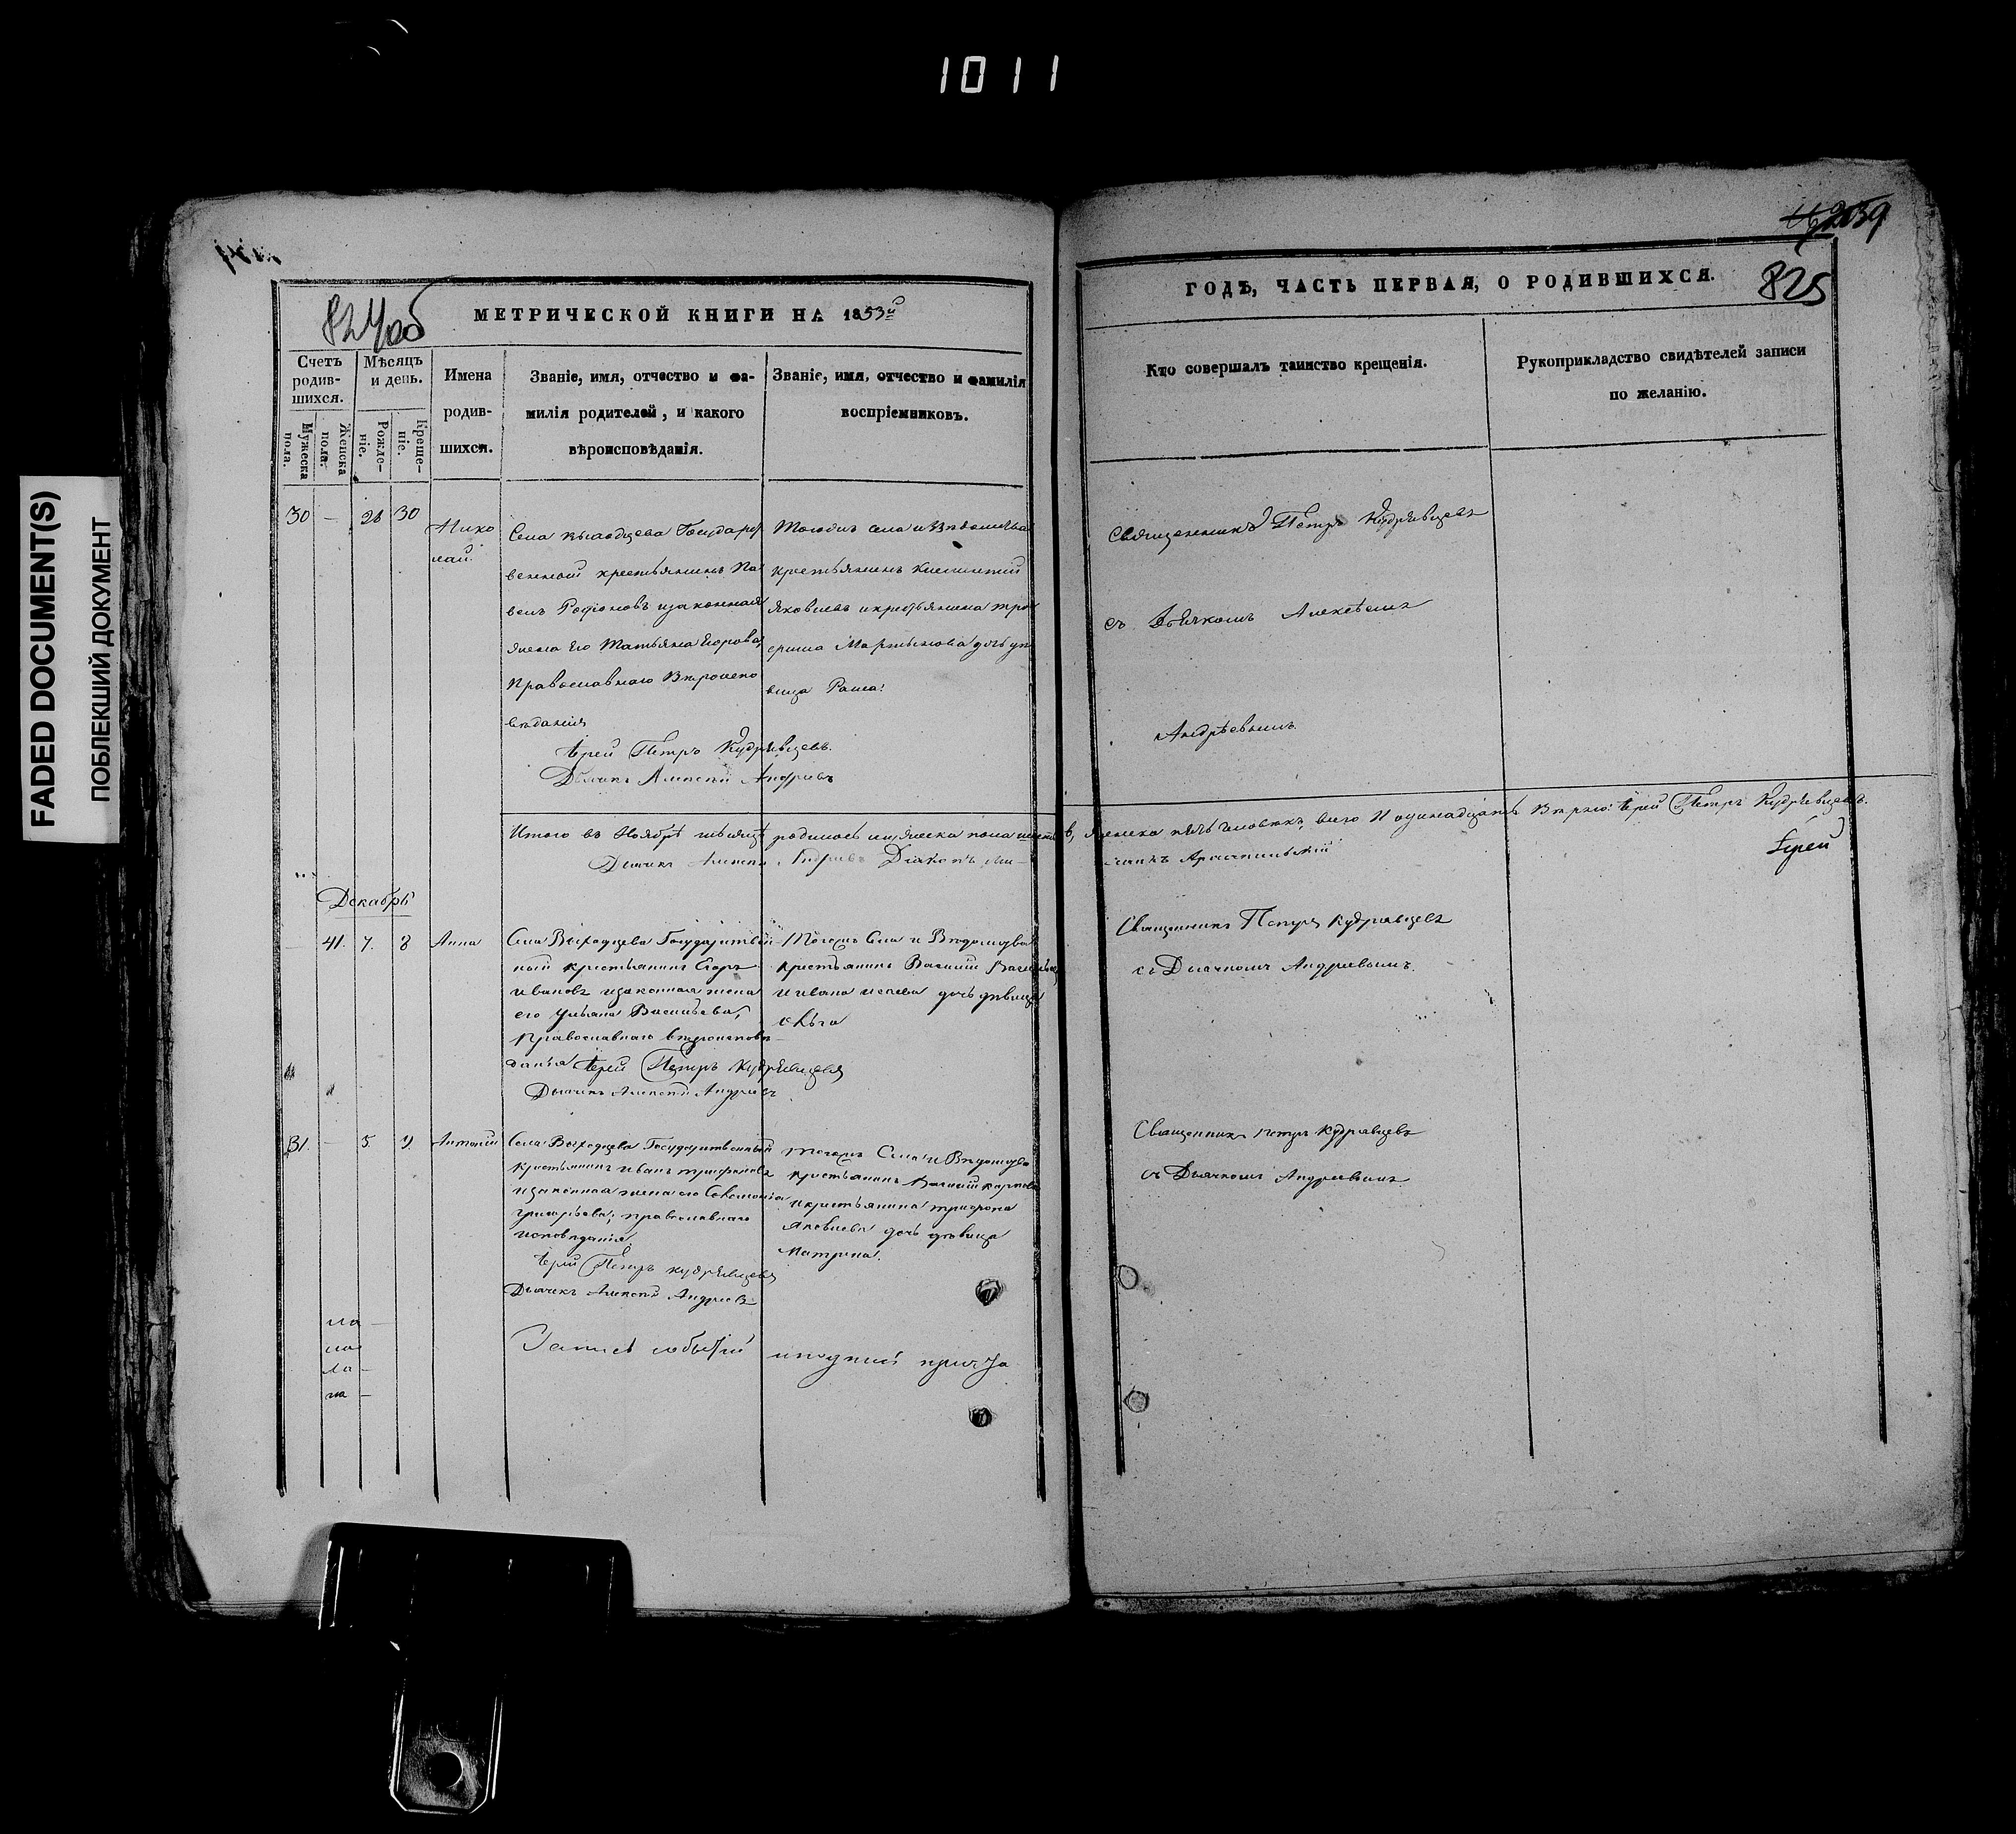 1011
FADED DOCUMENT(S)
ПОБЛЕКШИЙ ДОКУМЕНТ
824 об
МЕТРИЧЕСКОЙ КНИГИ НА 1853й
Счетъ родив-шихся.
Мужеска пола.
Женска пола.
Мѣсяцъ и день.
Рожде-ніе.
Креще-ніе.
Имена
родив-
шихся.
Званіе, имя, отчество и фа-
милія родителей, и какого
вѣроисповѣданія.
Званіе, имя, отчество и фамилія
воспріемниковъ.
30 — 28 30
Нико
лай.
Села Государст
венной крестьянинъ Па
велъ изаконная
жена Его Татьяна Егорова,
Православнаго Вѣроиспо
вѣданія
Іерей Петръ Кудрявцевъ.
Дьячекъ Алексѣй Андреевъ
Тогожъ села и Вѣдомства
крестьянинъ
Яковлевъ икрестьянина
Мартынова дочь дѣ
вица
Итого въ Ноябрѣ мѣсяцѣ родилось мужеска пола
Дьячекъ Алексѣй Андреевъ Діаконъ
Декабрь
41. 7. 8 Анна
Села Выходцева Государствен
ный крестьянинъ Егоръ
Ивановъ изаконная жена
его Ульяна Васильева,
Православнаго вѣроисповѣ
данія Іерей Петръ Кудрявцевъ
Дьячекъ Алексѣй Андреевъ
Тогожъ Села и Вѣдомства
крестьянинъ Василий
и Ивана дочь дѣвица
31. — 5. 9. Антоній
Села Выходцева Государственный
крестьянинъ Иванъ Трифоновъ
изаконная жена его Соломонія
Григорьева, православнаго
исповѣданія
Іерей Петръ Кудрявцевъ
Дьячекъ Алексѣй Андреевъ
Тогожъ Села и Вѣдомства
крестьянинъ Василий Карповъ
икрестьянина Трифона
Яковлева дочь дѣвица
Матрена.
ла —
ла
ла —
ла —
Запись событий
причта
2039
ГОДЪ, ЧАСТЬ ПЕРВАЯ, О РОДИВШИХСЯ.
825
Кто совершалъ таинство крещенія.
Рукоприкладство свидѣтелей записи
по желанію.
Священникъ Петръ Кудрявцевъ
съ Дьячкомъ Алексѣемъ
Андрѣевымъ.
женска пять человѣкъ, всего 11 одинадцать Іерей Петръ Кудрявцевъ.
Іерей
Священникъ Петръ Кудрявцевъ
съ Дьячкомъ Андреевымъ.
Священникъ Петръ Кудрявцевъ
съ Дьячкомъ Андреевымъ